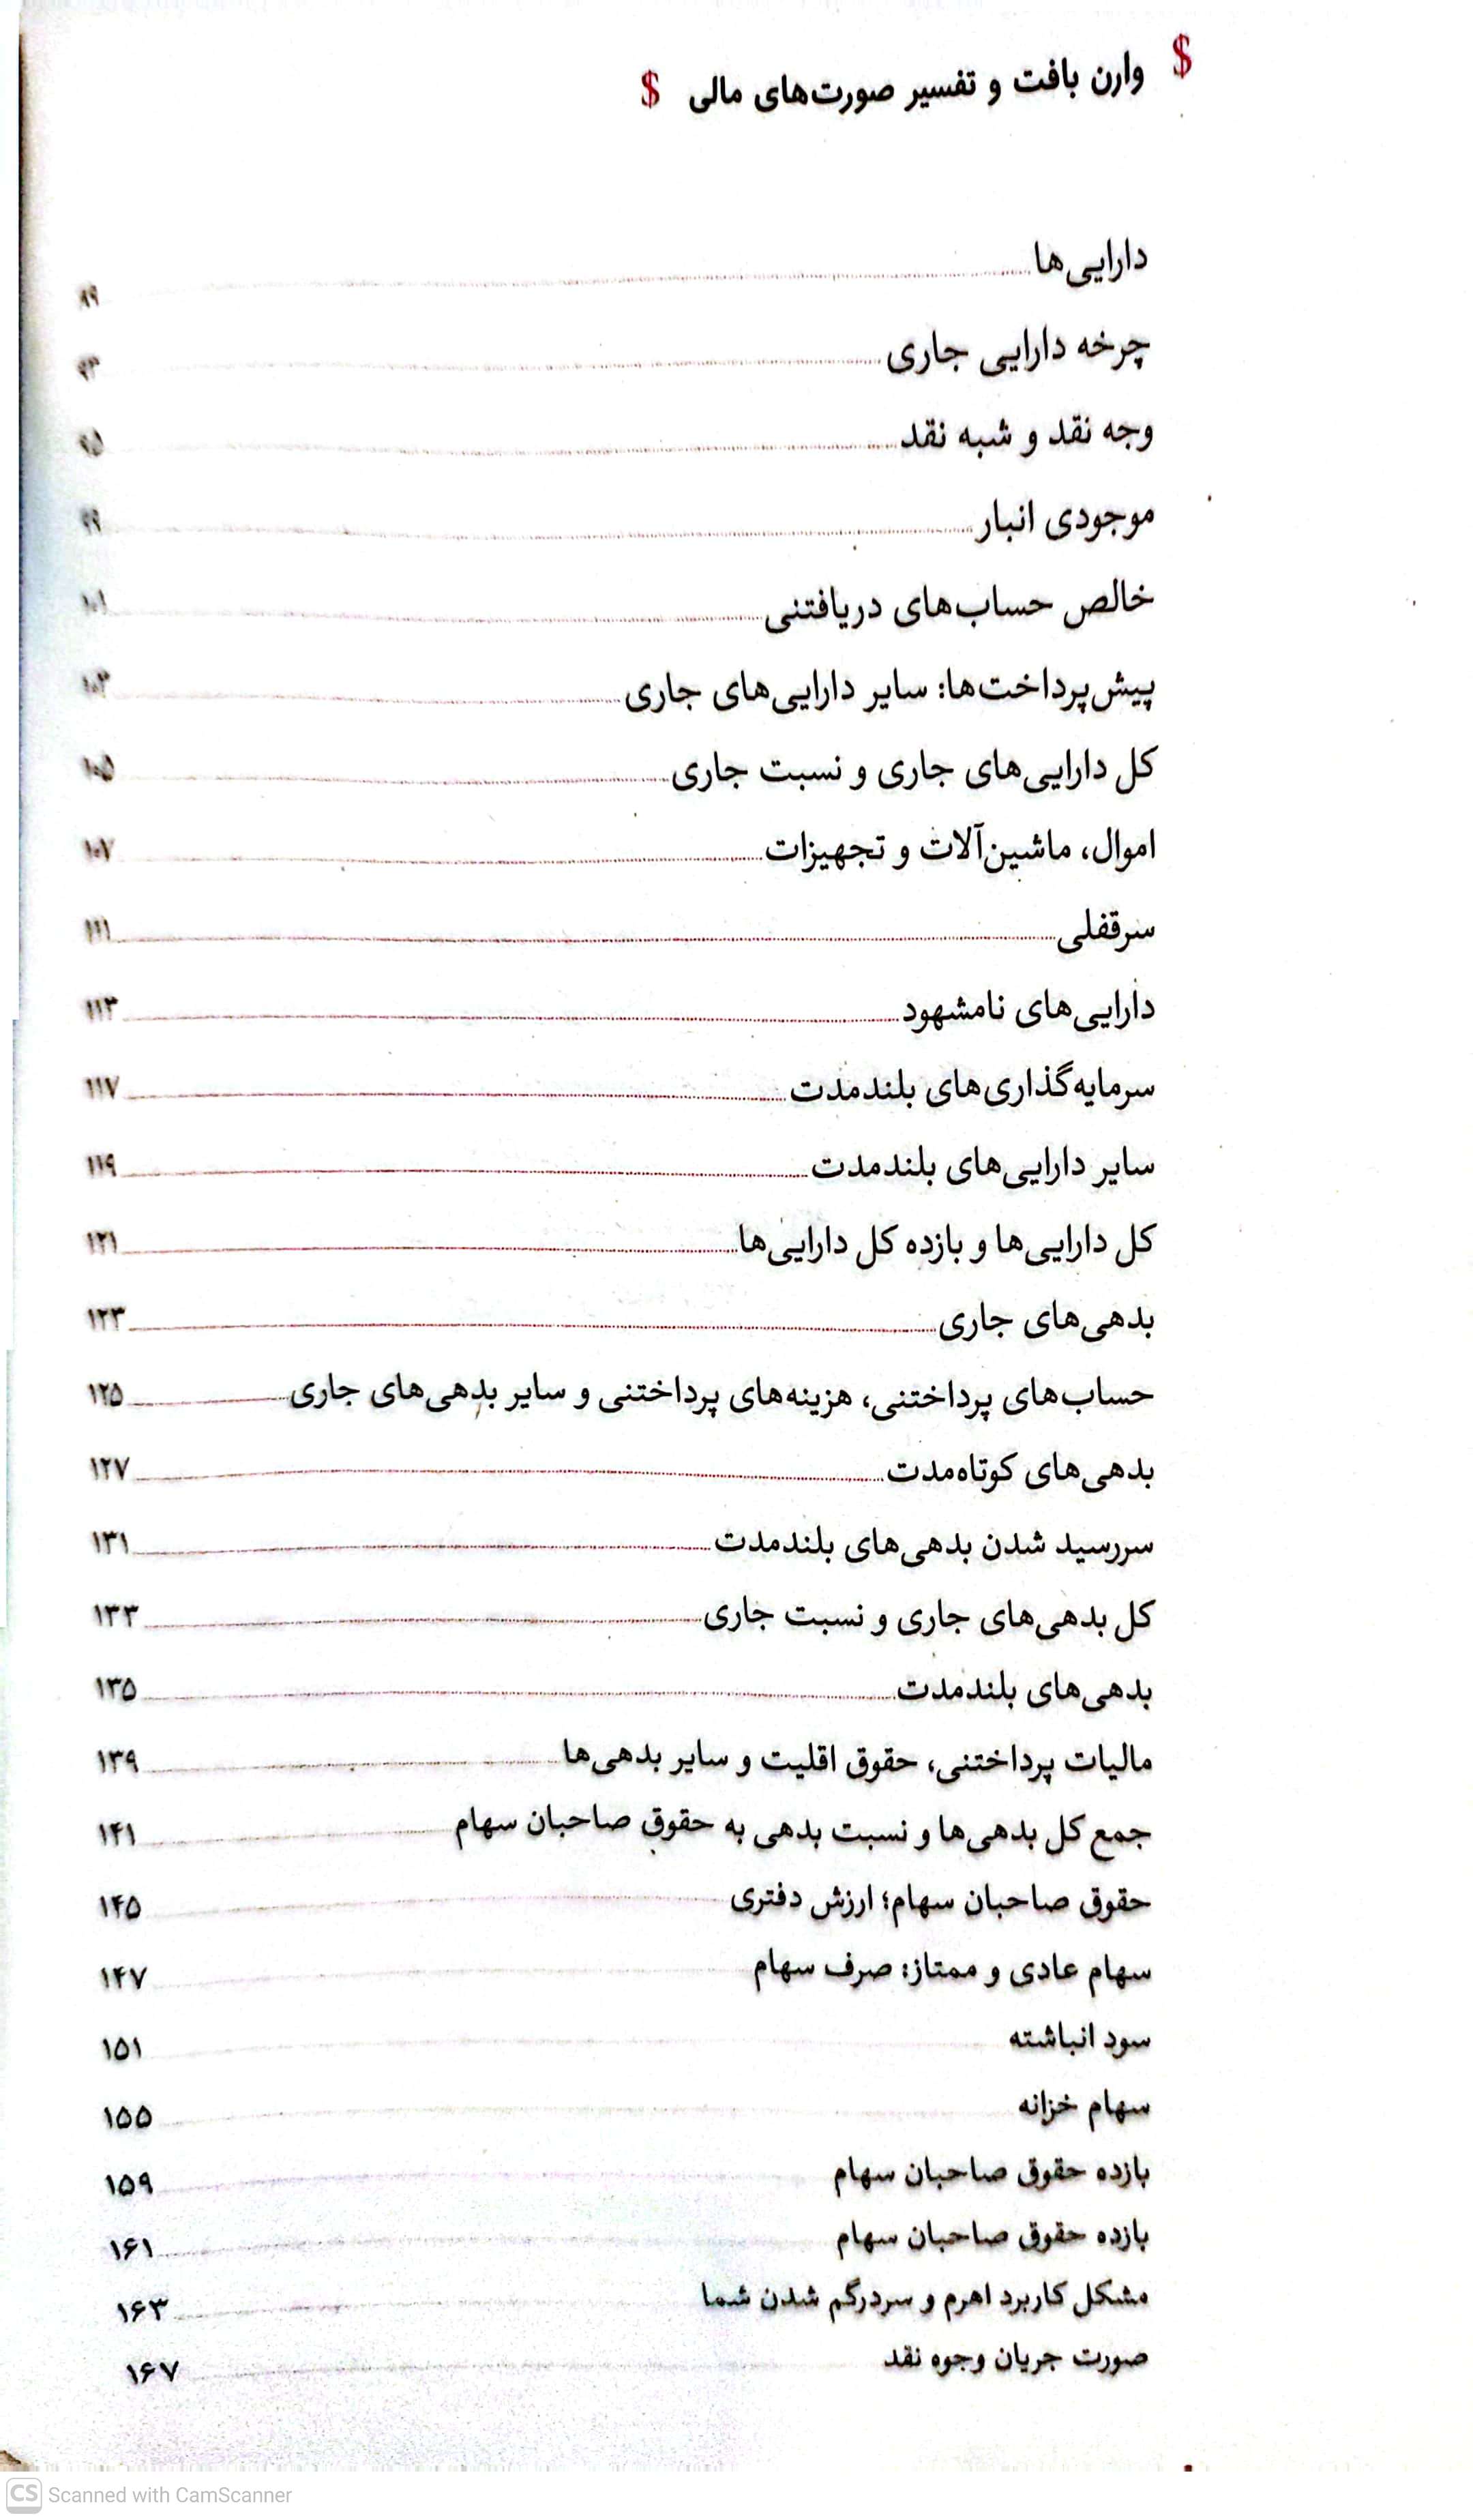 $ وارن بافت و تفسیر صورت‌های مالی $
دارایی‌ها ۸۹
چرخه دارایی جاری ۹۳
وجه نقد و شبه نقد ۹۵
موجودی انبار ۹۹
خالص حساب‌های دریافتنی ۱۰۱
پیش‌پرداخت‌ها: سایر دارایی‌های جاری ۱۰۳
کل دارایی‌های جاری و نسبت جاری ۱۰۵
اموال، ماشین‌آلات و تجهیزات ۱۰۷
سرقفلی ۱۱۱
دارایی‌های نامشهود ۱۱۳
سرمایه‌گذاری‌های بلندمدت ۱۱۷
سایر دارایی‌های بلندمدت ۱۱۹
کل دارایی‌ها و بازده کل دارایی‌ها ۱۲۱
بدهی‌های جاری ۱۲۳
حساب‌های پرداختنی، هزینه‌های پرداختنی و سایر بدهی‌های جاری ۱۲۵
بدهی‌های کوتاه‌مدت ۱۲۷
سررسید شدن بدهی‌های بلندمدت ۱۳۱
کل بدهی‌های جاری و نسبت جاری ۱۳۳
بدهی‌های بلندمدت ۱۳۵
مالیات پرداختنی، حقوق اقلیت و سایر بدهی‌ها ۱۳۹
جمع کل بدهی‌ها و نسبت بدهی به حقوق صاحبان سهام ۱۴۱
حقوق صاحبان سهام؛ ارزش دفتری ۱۴۵
سهام عادی و ممتاز: صرف سهام ۱۴۷
سود انباشته ۱۵۱
سهام خزانه ۱۵۵
بازده حقوق صاحبان سهام ۱۵۹
بازده حقوق صاحبان سهام ۱۶۱
مشکل کاربرد اهرم و سردرگم شدن شما ۱۶۳
صورت جریان وجوه نقد ۱۶۷
CS Scanned with CamScanner